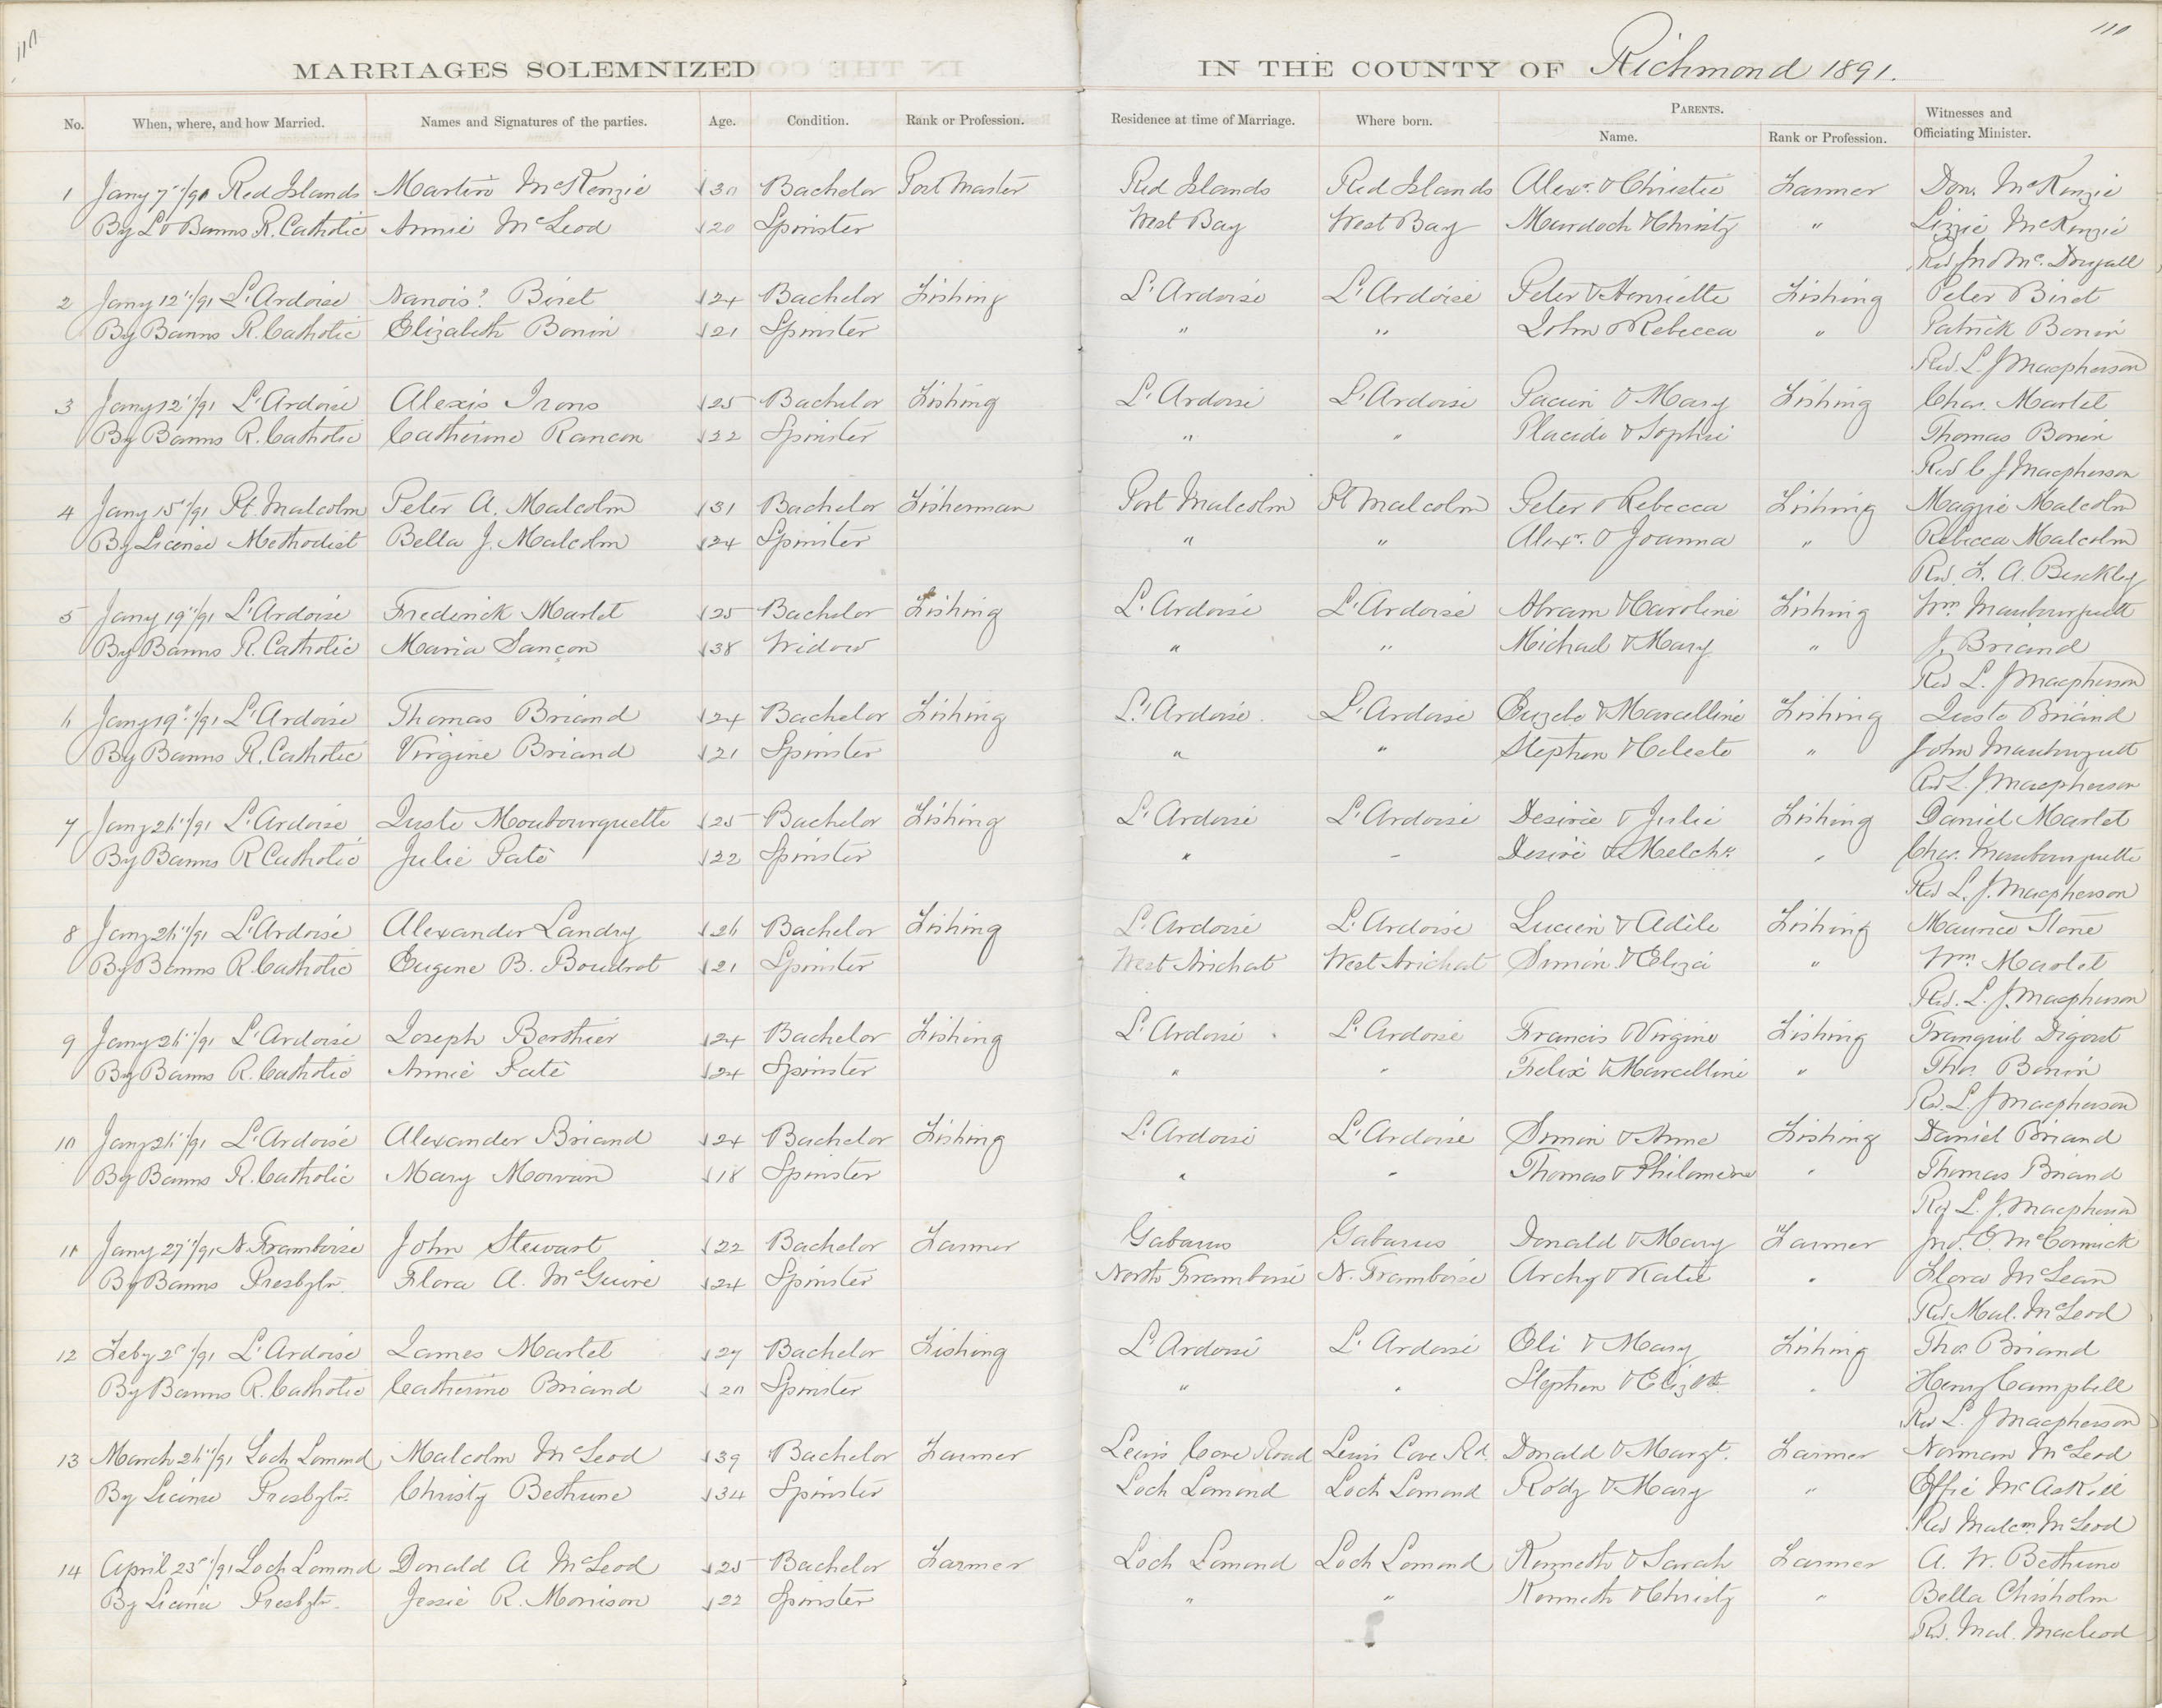 110
110
MARRIAGES SOLEMNIZED IN THE COUNTY OF Richmond 1891.
No. When, where, and how Married. Names and Signatures of the parties. Age. Condition. Rank or Profession. Residence at time of Marriage. Where born. PARENTS. Name. Rank or Profession. Witnesses and Officiating Minister.
1 Jany 7"/91 Red Islands Martin McKenzie 30 Bachelor Post Master Red Islands Red Islands Alexr. & Christie Farmer Don. McKenzie
By L & Banns R. Catholic Annie McLeod 20 Spinster West Bay West Bay Murdoch & Christy " Lizzie McKenzie
Rev Jno Mc. Dougall
2 Jany 12"/91 L'Ardoise Nanois? Biret 24 Bachelor Fishing L'Ardoise L'Ardoise Peter & Henriette Fishing Peter Biret
By Banns R. Catholic Elizabeth Bonin 21 Spinster " " John & Rebecca " Patrick Bonin
Rev. L. J Macpherson
3 Jany 12"/91 L'Ardoise Alexis Irons 25 Bachelor Fishing L'Ardoise L'Ardoise & Mary Fishing Chas. Martel
By Banns R. Catholic Catherine Rancon 22 Spinster " " Placide & Sophie Thomas Bonin
Rev C J Macpherson
4 Jany 15"/91 Pt. Malcolm Peter A. Malcolm 31 Bachelor Fisherman Port Malcolm Pt Malcolm Peter & Rebecca Fishing Maggie Malcolm
By License Methodist Bella J. Malcolm 24 Spinster " " Alexr. & Joanna " Rebecca Malcolm
Rev. F. A. Buckley
5 Jany 19"/91 L'Ardoise Frederick Martet 25 Bachelor Fishing L'Ardoise L'Ardoise Abram & Caroline Fishing Wm Maubourquett
By Banns R. Catholic Maria Sancon 38 Widow " " Michael & Mary " J. Briand
Rev L. J Macpherson
6 Jany 19"/91 L'Ardoise Thomas Briand 24 Bachelor Fishing L'Ardoise L'Ardoise & Marcelline Fishing Juste Briand
By Banns R. Catholic Virgine Briand 21 Spinster " " Stephen & Celeste " John
Rev L. J. Macpherson
7 Jany 26"/91 L'Ardoise Juste Moubourquette 25 Bachelor Fishing L'Ardoise L'Ardoise Desirée & Julie Fishing Daniel Martet
By Banns R Catholic Julie Paté 22 Spinster " " Desiré & Melchr. " Chas. Maubourquette
Rev L. J. Macpherson
8 Jany 26"/91 L'Ardoise Alexander Landry 26 Bachelor Fishing L'Ardoise L'Ardoise Lucien & Adèle Fishing Maurice Stone
By Banns R. Catholic Eugene B. Boudrot 21 Spinster West Arichat West Arichat Simon & Eliza " Wm Martet
Rev. L. J. Macpherson
9 Jany 26"/91 L'Ardoise Joseph Berthier 24 Bachelor Fishing L'Ardoise L'Ardoise Francis & Virgine Fishing Tranquil Digout
By Banns R. Catholic Annie Paté 24 Spinster " " Felix & Marcelline " Thos Bonin
Rev. L. J Macpherson
10 Jany 26"/91 L'Ardoise Alexander Briand 24 Bachelor Fishing L'Ardoise L'Ardoise Simon & Anne Fishing Daniel Briand
By Banns R. Catholic Mary Morvan 18 Spinster " " Thomas & Philomene " Thomas Briand
Rev L. J. Macpherson
11 Jany 27"/91 N. Framboise John Stewart 22 Bachelor Farmer Gabarus Gabarus Donald & Mary Farmer Jno. E. McCormick
By Banns Presbytn. Flora A. McGuire 24 Spinster North Framboise N. Framboise Archy & Katie " Flora McLean
Rev Mal. McLeod
12 Feby 2"/91 L'Ardoise James Martel 27 Bachelor Fishing L'Ardoise L'Ardoise Eli & Mary Fishing Thos Briand
By Banns R. Catholic Catherine Briand 20 Spinster " " Stephen & Elizbth " Henry Campbell
Rev L. J Macpherson
13 March 26"/91 Loch Lomond Malcolm McLeod 39 Bachelor Farmer Lewis Cove Road Lewis Cove Rd. Donald & Margt. Farmer Norman McLeod
By License Presbytn. Christy Bethune 34 Spinster Loch Lomond Loch Lomond Rody & Mary " Effie McAskill
Rev Malcm. McLeod
14 April 23"/91 Loch Lomond Donald A McLeod 25 Bachelor Farmer Loch Lomond Loch Lomond Kenneth & Sarah Farmer A. W. Bethune
By License Presbytn. Jessie R. Morrison 22 Spinster " " Kenneth & Christy " Bella Chisholm
Rev. Mal. Macleod